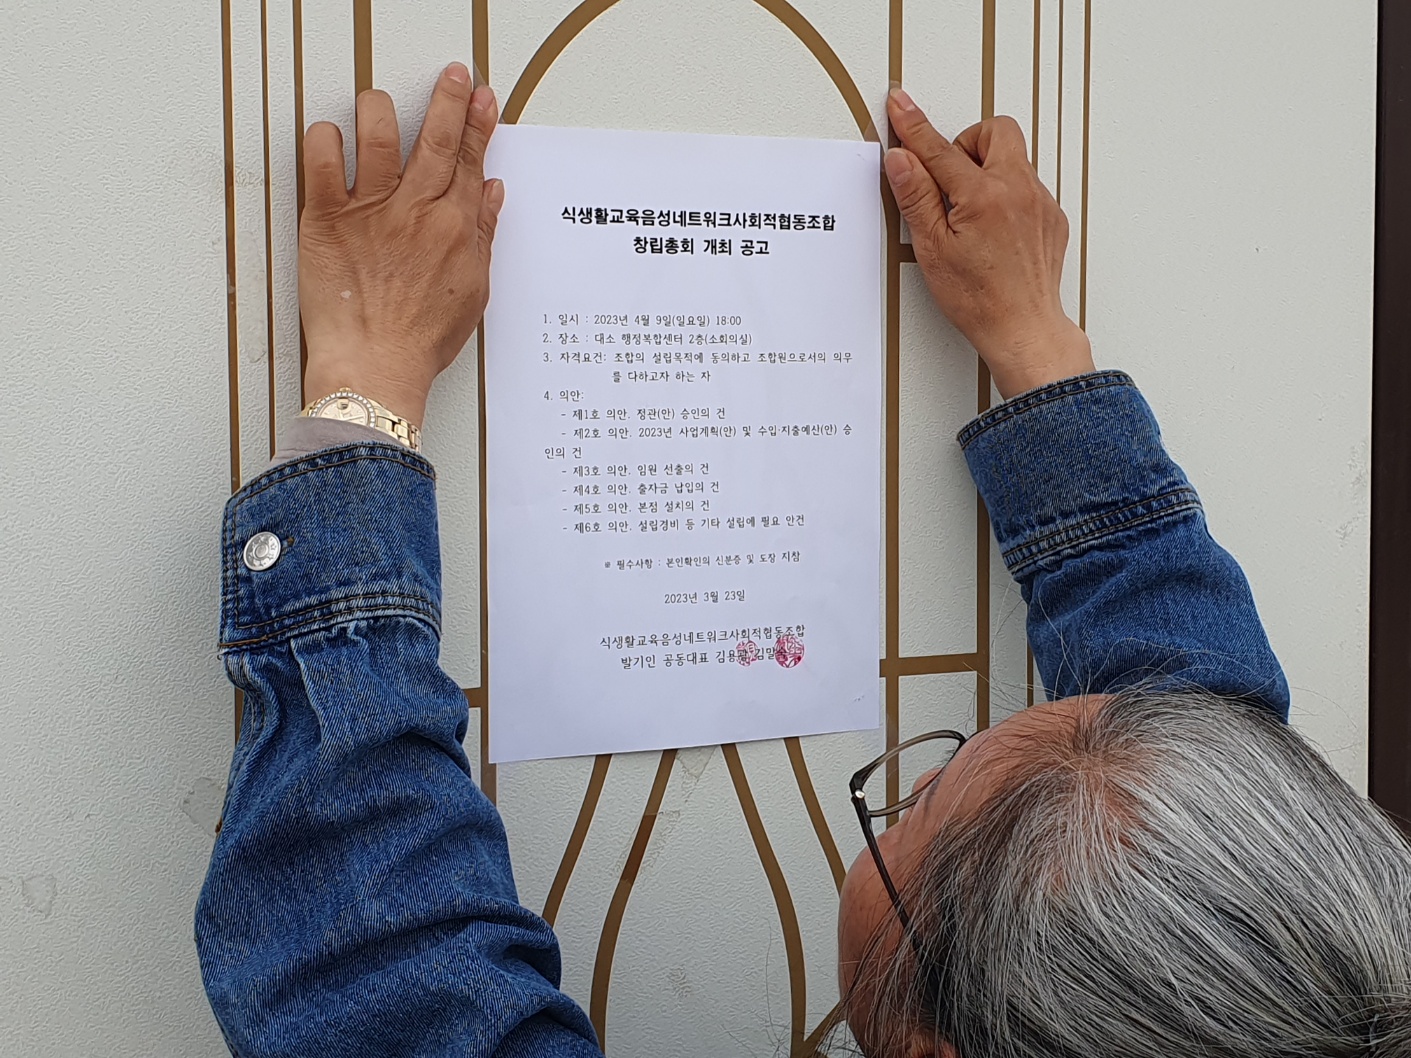 식생활교육음성네트워크사회적협동조합
창립총회 개최 공고
1. 일시 : 2023년 4월 9일(일요일) 18:00
2. 장소 : 대소 행정복합센터 2층(소회의실)
3. 자격요건: 조합의 설립목적에 동의하고 조합원으로서의 의무
를 다하고자 하는 자
4. 의안:
- 제1호 의안. 정관(안) 승인의 건
- 제2호 의안. 2023년 사업계획(안) 및 수입·지출예산(안) 승
인의 건
- 제3호 의안. 임원 선출의 건
- 제4호 의안. 출자금 납입의 건
- 제5호 의안. 본점 설치의 건
- 제6호 의안. 설립경비 등 기타 설립에 필요 안건
※ 필수사항 : 본인확인의 신분증 및 도장 지참
2023년 3월 23일
식생활교육음성네트워크사회적협동조합
발기인 공동대표